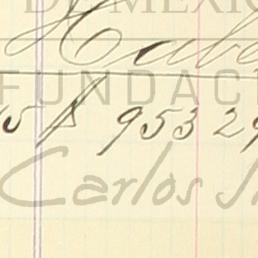 DE MÉXICO
Habe
FUNDACI
15 $ 953 29
Carlos S